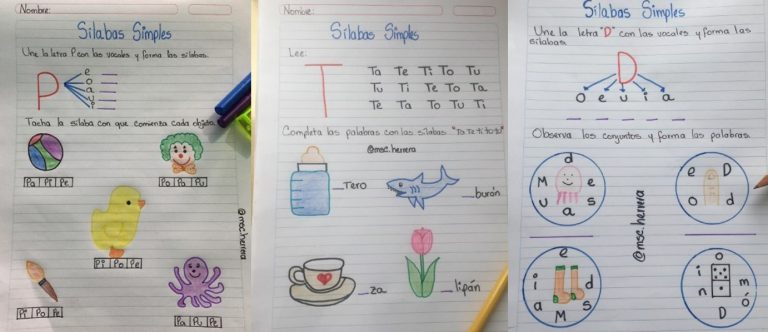 Nombre:
Sílabas Simples
Une la letra P con las vocales y forma las sílabas.
P
e
o
a
u
i
Tacha la sílaba con que comienza cada objeto.
Pa Pi Pe
Po Pa Pu
Pi Po Pe
Pi Po Pe
Pa Pu Pe
@msc.herrera
Nombre:
Sílabas Simples
Lee:
T
Ta Te Ti To Tu
Tu Ti Te To Ta
Te Ta To Tu Ti
Completa las palabras con las sílabas "Ta Te ti to tu"
@msc.herrera
_Tero
_burón
_za
_lipán
Sílabas Simples
Une la letra "D" con las vocales y forma las
sílabas.
D
o e u i a
Observa los conjuntos y forma las palabras.
d
M e
u s
a
e D
o d
@msc.herrera
e
i d
a s
M
o
i
n m
ó
D